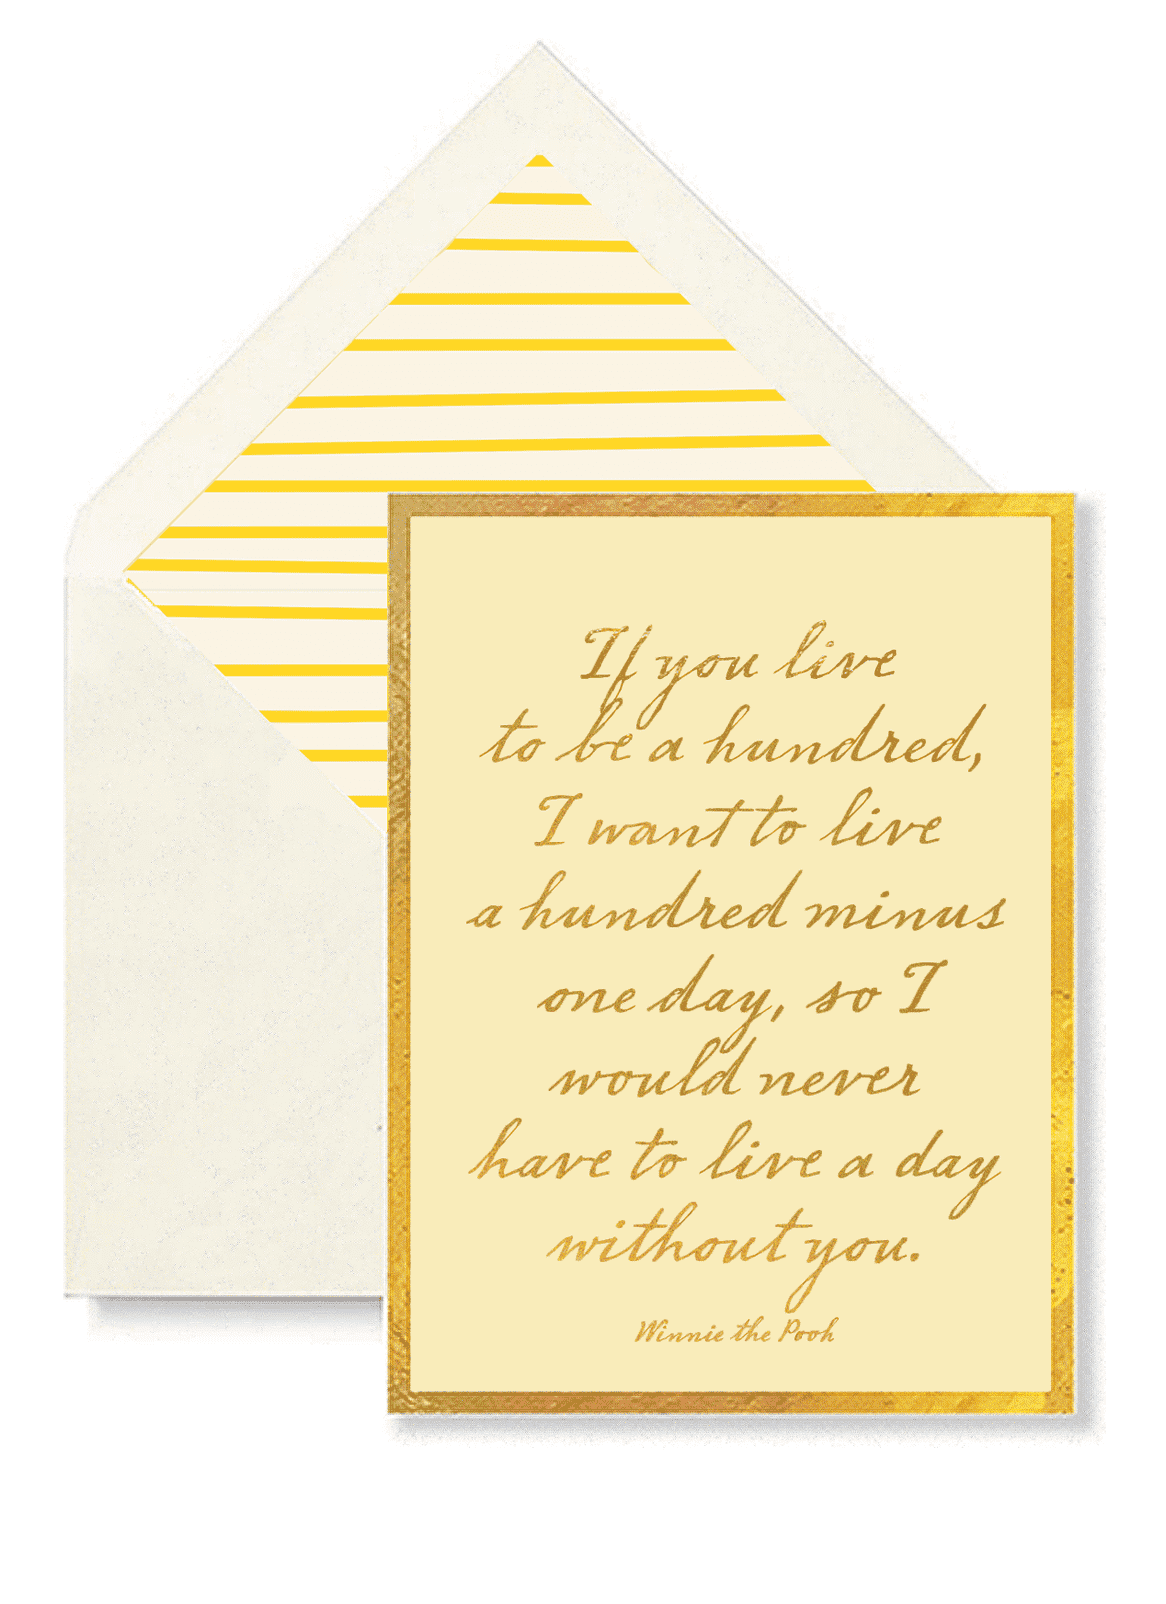 If you live
to be a hundred,
I want to live
a hundred minus
one day, so I
would never
have to live a day
without you.
Winnie the Pooh